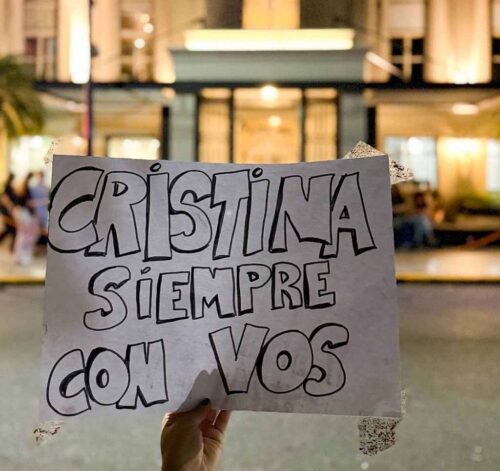 CRISTINA
SIEMPRE
CON VOS